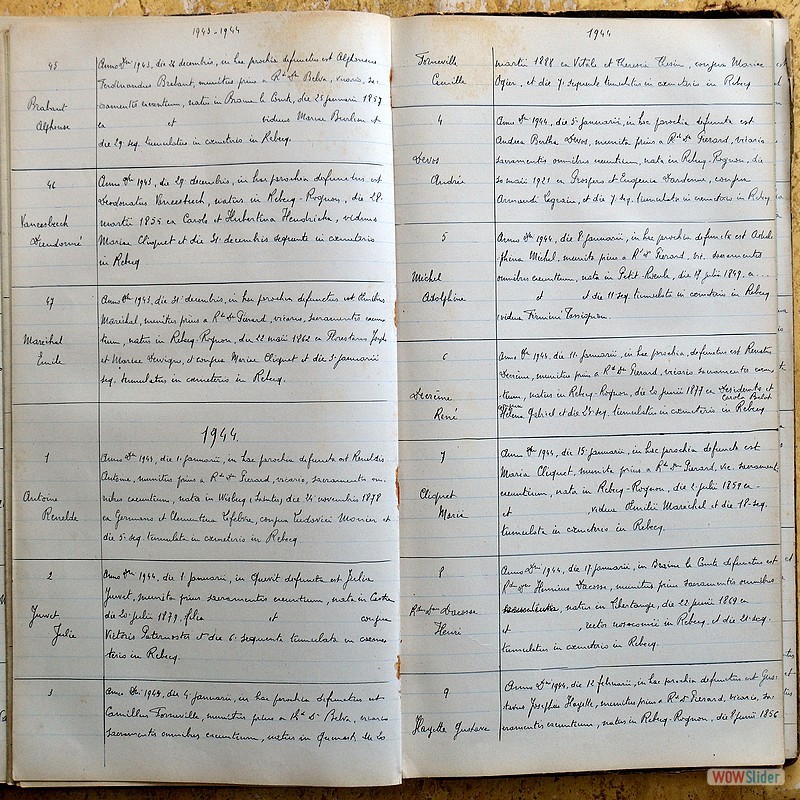 1943-1944
45
Brabant
Alphonse
Anno Dni 1943, die 26 decembris, in hac prochia defunctus est Alphonsus
Ferdinandus Brabant, munitus prius a Rdo Dno Belva, vicario, sa-
cramentis exeuntium, natus in Braine le Comte, die 25 januarii 1857
ex et viduus Mariae Burlion et
die 29 seq. tumulatus in cœmeterio in Rebecq.
46
Vancesbeech
Dieudonné
Anno Dni 1943, die 29 decembris, in hac prochia defunctus est
Deodonatus natus in Rebecq-Rognon, die 28
martii 1855 ex Carolo et Hubertina Hendrickx, viduus
Mariae Cliquet et die 31 decembris sequente in cœmeterio
in Rebecq
47
Maréchal
Emile
Anno Dni 1943, die 31 decembris, in hac parochia defunctus est Aemilius
Maréchal, munitus prius a Rdo Dno Pierard, vicario, sacramentis exeun-
tium, natus in Rebecq-Rognon, die 22 maii 1862 ex Florestano Joseph
et Mariae Devigne, et conjux Mariae Cliquet et die 3 januarii
seq. tumulatus in cœmeterio in Rebecq.
1944
1
Antoine
Renelde
Anno Dni 1943, die 1 januarii, in hac prochia defuncta est Reneldis
Antoine, munitus prius a Rdo Dno Pierard, vicario, sacramentis om-
nibus exeuntium, nata in Wisbecq (Saintes) die 24 novembris 1878
ex Germano et Clementina Lefebvre, conjux Ludovici Monien et
die 5 seq. tumulata in cœmeterio in Rebecq
2
Juvet
Julie
Anno Dni 1944, die 1 Januarii, in Quevit defuncta est Julia
Juvet, munita prius sacramentis exeuntium, nata in Castre
die 20 julii 1879, filia et conjux
Victoris Paternostre et die 6 sequente tumulata in cœme-
terio in Rebecq.
3
Anno Dni 1944, die 4 januarii, in hac prochia defunctus est
Camillus Forneville, munitus prius a Rdo Dno Belva, vicario
sacramentis omnibus exeuntium, natus in Quenast, die 20
1944
Forneville
Camille
martii 1888 ex Vitale et Theresia Thesin, conjux Mariae
Ogier, et die 7 sequente tumulatus in cœmeterio in Rebecq
4
Devos
Andrée
Anno Dni 1944, die 5 januarii, in hac parochia defuncta est
Andrea Bertha Devos, munita prius a Rdo Dno Pierard, vicario
sacramentis omnibus exeuntium, nata in Rebecq-Rognon, die
20 maii 1921 ex Prospero et Eugenia Dardenne, conjux
Armandi Legrain, et die 7 seq. tumulata in cœmeterio in Rebecq
5
Michel
Adolphine
Anno Dni 1944, die 8 januarii, in hac prochia defuncta est Adol-
phina Michel, munita prius a Rdo Dno Pierard, vic. sacramentis
omnibus exeuntium, nata in Petit-Roeulx, die 17 julii 1849, ex ...
et et die 11 seq. tumulata in cœmeterio in Rebecq
vidua Firmini Tassignon.
6
René
Anno Dni 1944, die 11 januarii, in hac prochia, defunctus est Renatus
munitus prius a Rdo Dno Pierard, vicario sacramentis exeun-
tium, natus in Rebecq-Rognon, die 20 junii 1877 ex Desiderato et
Carola Balat
conjux Helena Gabriel et die 24 seq. tumulatus in cœmeterio in Rebecq
7
Cliquet
Marie
Anno Dni 1944, die 15 januarii, in hac parochia defuncta est
Maria Cliquet, munita prius a Rdo Dno Pierard, vic. sacrament.
exeuntium, nata in Rebecq-Rognon, die 2 julii 1859 ex
et vidua Aemilii Maréchal et die 18 seq.
tumulata in cœmeterio in Rebecq.
8
Rdus Dnus Dacosse
Henri
Anno Dni 1944, die 17 januarii, in Braine le Comte defunctus est
Rdus Dnus Henricus Dacosse, munitus prius sacramentis omnibus
natus in Thertange, die 22 junii 1869 ex
et rector nosocomii in Rebecq, et die 21 seq.
tumulatus in cœmeterio in Rebecq.
9
Hayette Gustave
Anno Dni 1944, die 12 februarii, in hac prochia defunctus est Gus-
tavus Josephus Hayette, munitus prius a Rdo Dno Pierard, vicario, sa-
cramentis exeuntium, natus in Rebecq-Rognon, die 8 junii 1856
WOWSlider